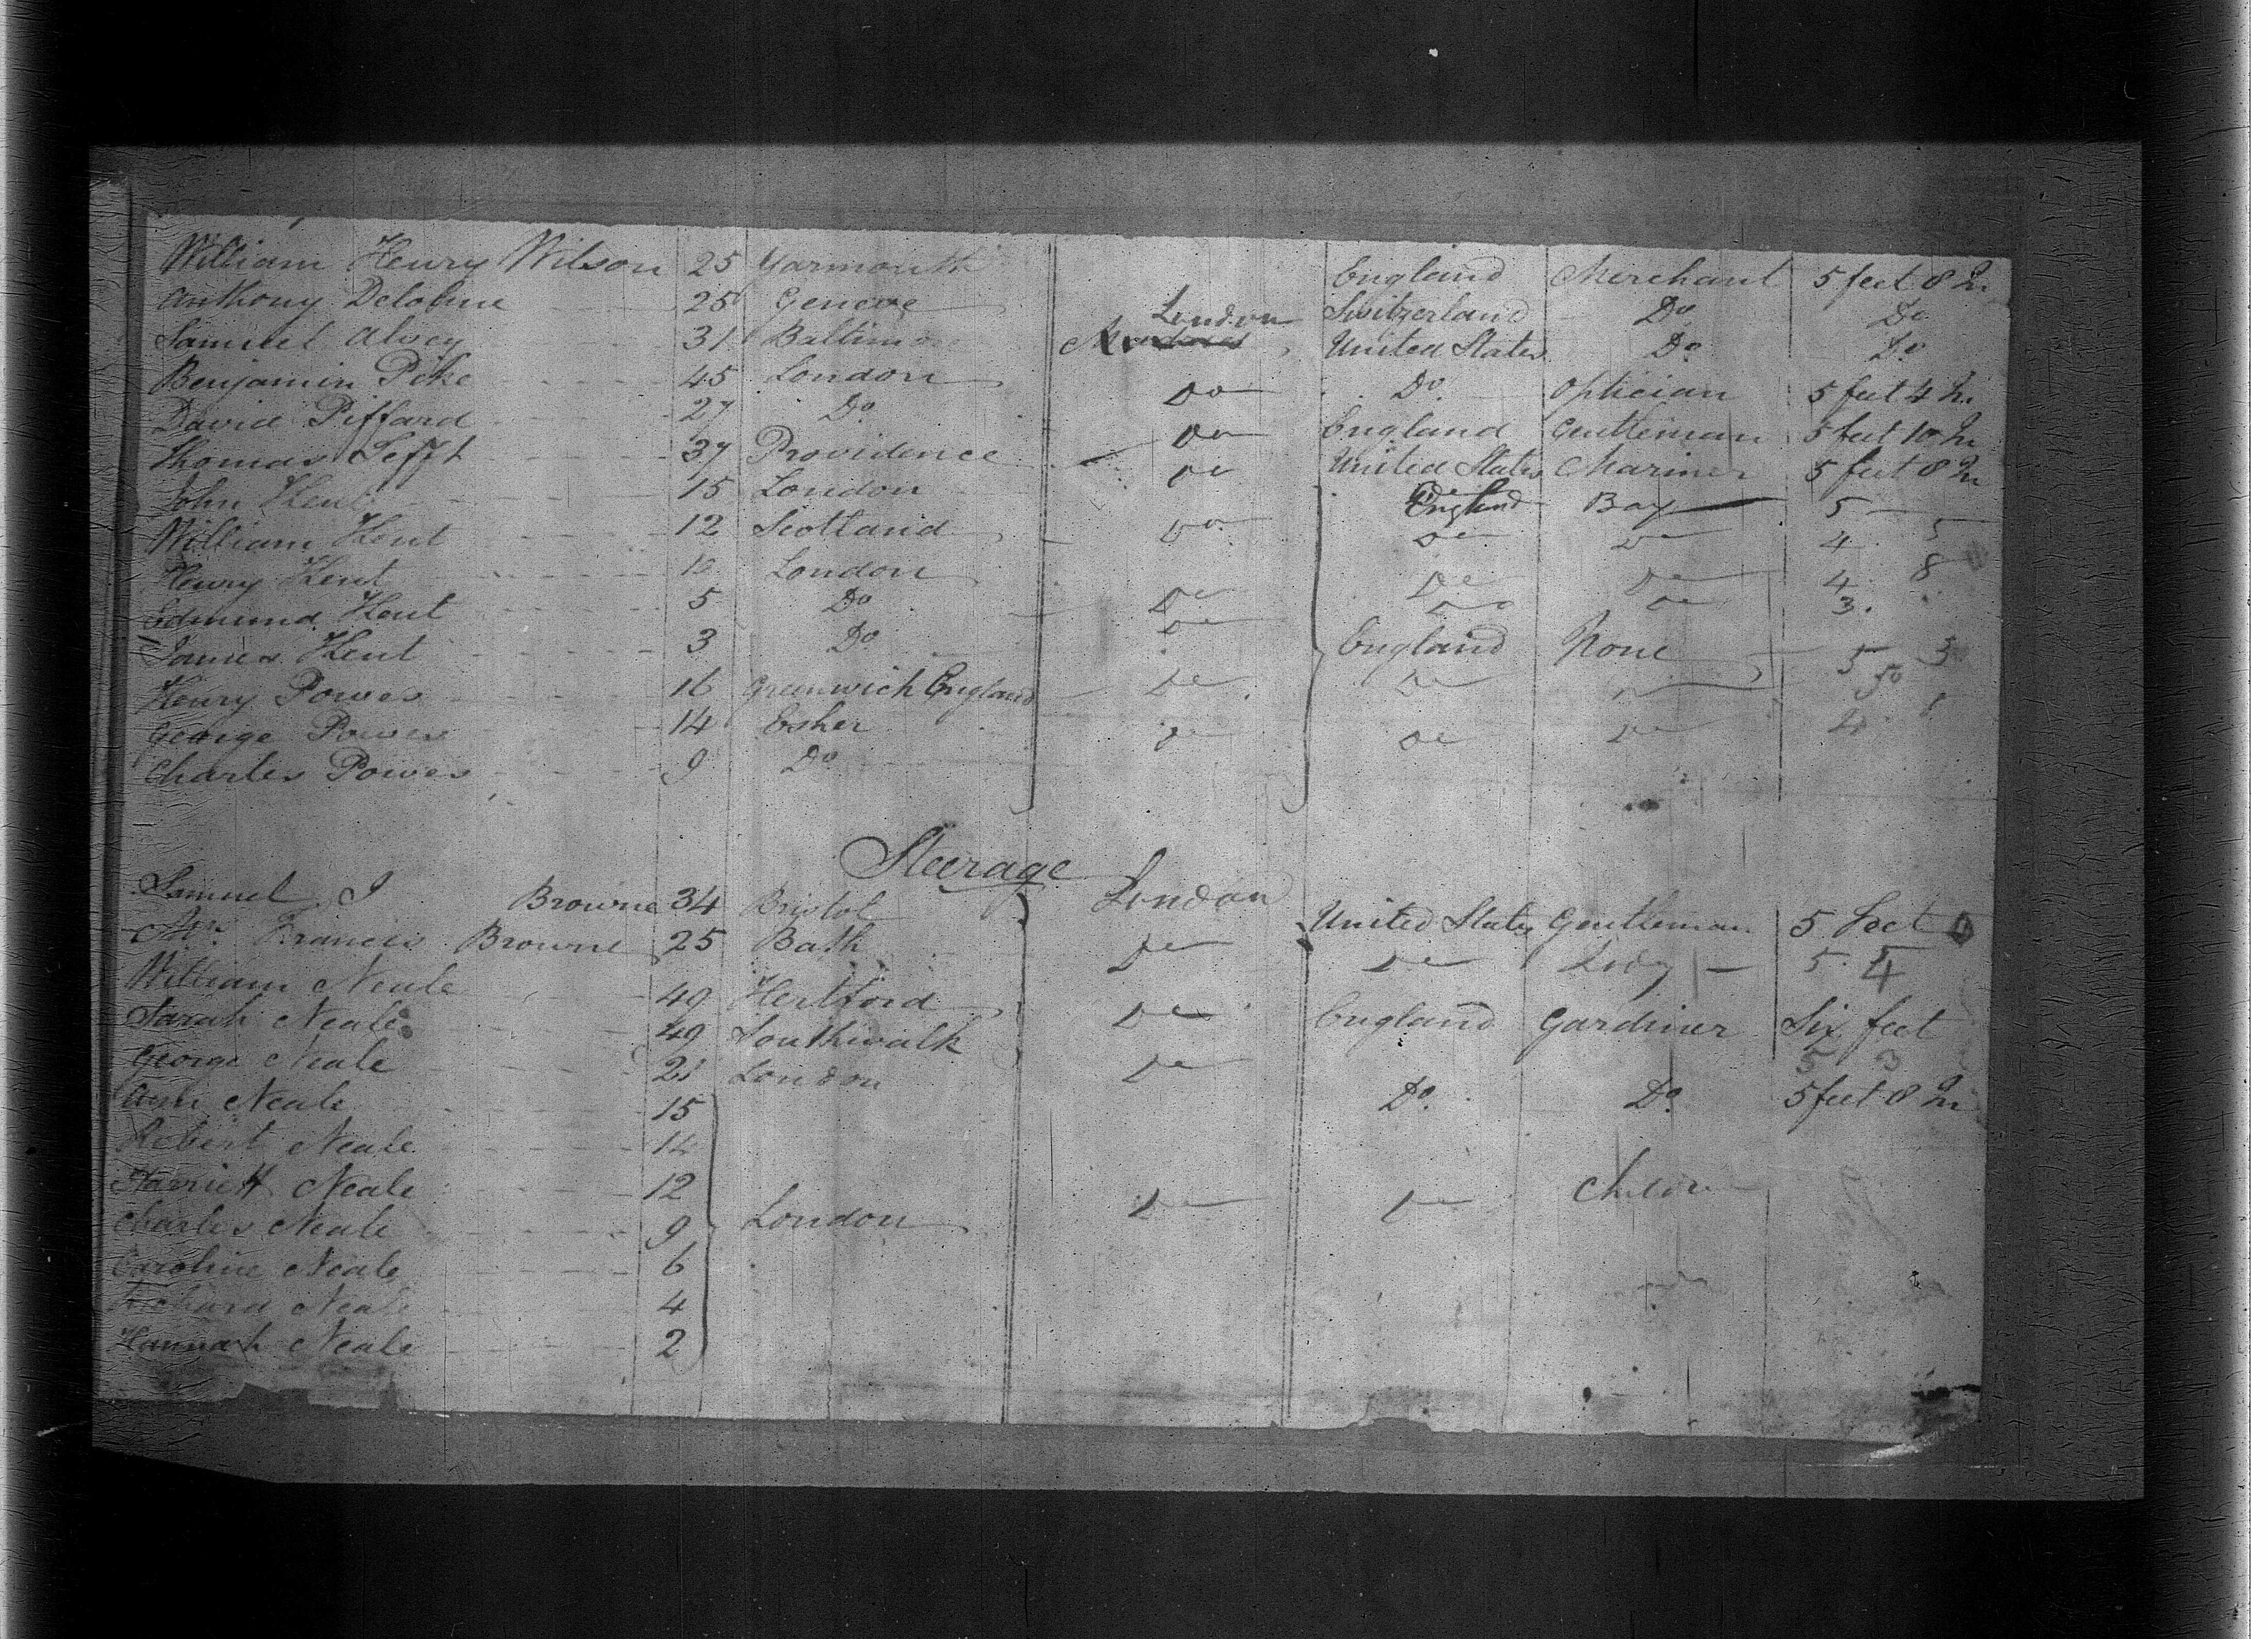 William Henry Wilson 25 Yarmouth England Merchant 5 feet 8 In
Anthony Delolme 25 Geneve London Switzerland Do Do
Samuel Alvey 31 Baltimore United States Do Do
Benjamin Pike 45 London Do Do Optician 5 feet 4 In
David Piffard 27 Do Do England Gentleman 5 feet 10 In
Thomas Lefft 37 Providence Do United States Mariner 5 feet 8 In
John Kent 15 London England Boy 5
William Kent 12 Scotland Do Do Do 4 5
Henry Kent 10 London Do Do 4 8
Edmund Kent 5 Do Do Do Do 3
James Kent 3 Do Do England None 5 3
Henry Power 16 Greenwich England Do Do 5
George Power 14 Esher Do Do Do 4
Charles Power 9 Do
Steerage
Samuel J Browne 34 Bristol London United States Gentleman 5 feet
Mrs Francis Browne 25 Bath Do Do Lady 5 4
William Neale 49 Hertford Do England Gardiner Six feet
Sarah Neale 49 Southwalk Do 5 3
George Neale 21 London Do Do 5 feet 8 In
Ann Neale 15
Robert Neale 14
Harriett Neale 12
Charles Neale 9 London Do Do
Caroline Neale 6
Richard Neale 4
Hannah Neale 2